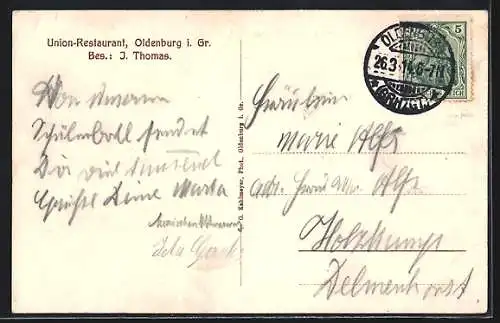 Union-Restaurant, Oldenburg i. Gr.
Bes.: J. Thomas.
Von unserem
Schülerball sendet
Dir viel tausend
Grüße Deine Marta
G. Kuhlmeyer, Phot., Oldenburg i. Gr.
OLDENBURG
26.3.14. 6-7N
(GRHZGT.)
5
Fräulein
Marie Ahlfs
adr. Frau Ww. Ahlfs
Holzkamp
Delmenhorst